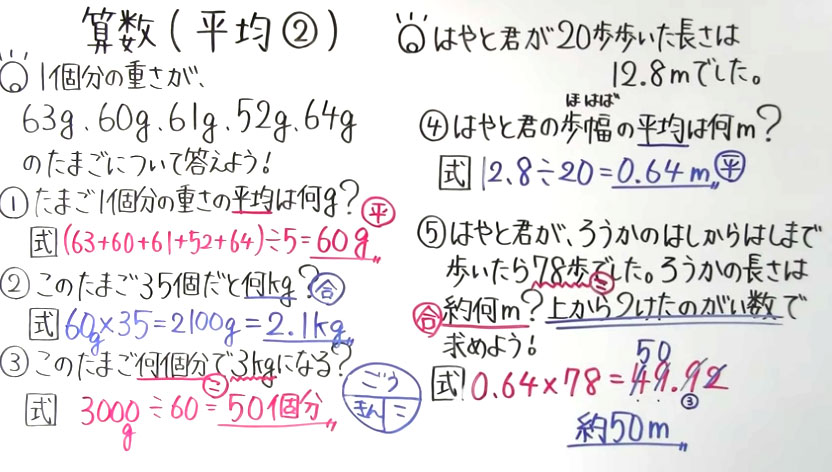 算数(平均②)
1個分の重さが、
63g、60g、61g、52g、64g
のたまごについて答えよう!
①たまご1個分の重さの平均は何g? 平
式 (63+60+61+52+64)÷5=60g
②このたまご35個だと何kg? 合
式 60g×35=2100g=2.1kg
③このたまご何個分で3kgになる?
こ
式 3000g÷60=50個分
ごう
きん こ
はやと君が20歩歩いた長さは
12.8mでした。
ほはば
④はやと君の歩幅の平均は何m?
式 12.8÷20=0.64m 平
⑤はやと君が、ろうかのはしからはしまで
歩いたら78歩でした。ろうかの長さは
こ
合 約何m?上から1けたのがい数で
求めよう!
50
式 0.64×78=49.92
③
約50m